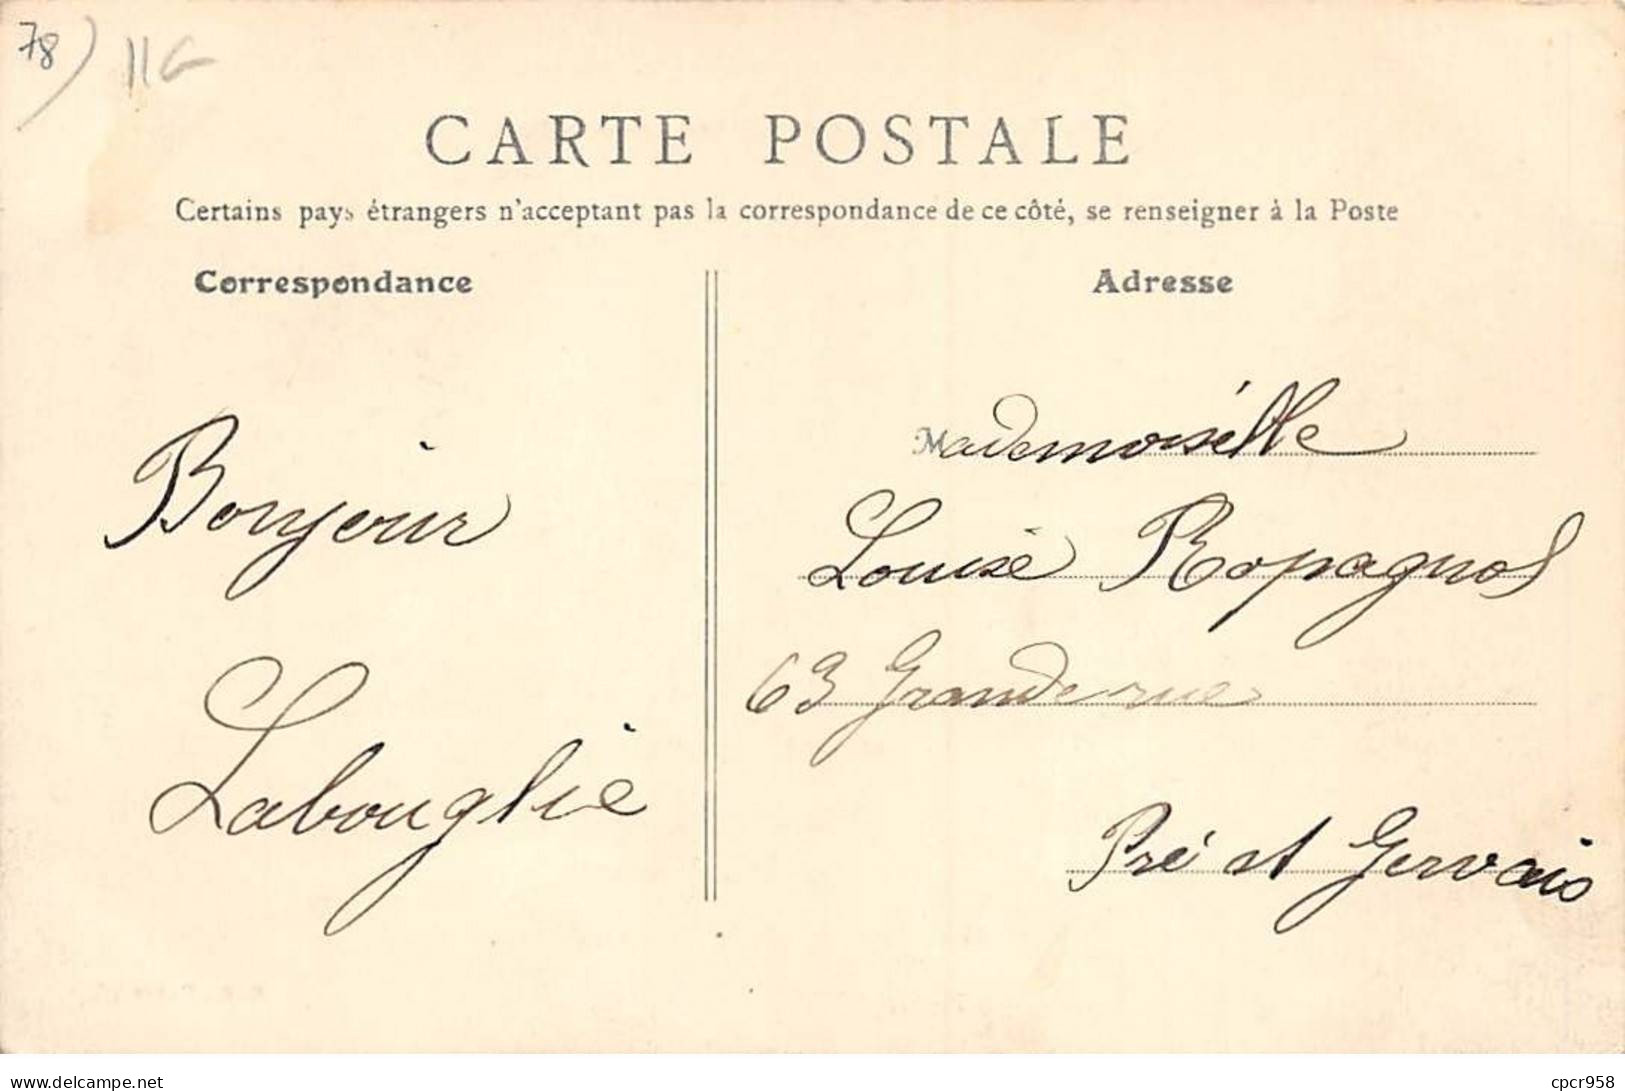 78) 11G
CARTE POSTALE
Certains pays étrangers n'acceptant pas la correspondance de ce côté, se renseigner à la Poste
Correspondance
Bonjour
Labouglie
Adresse
Mademoiselle
Louise Ropagnol
63 Grande rue
Pré st Gervais
www.delcampe.net
cpcr958